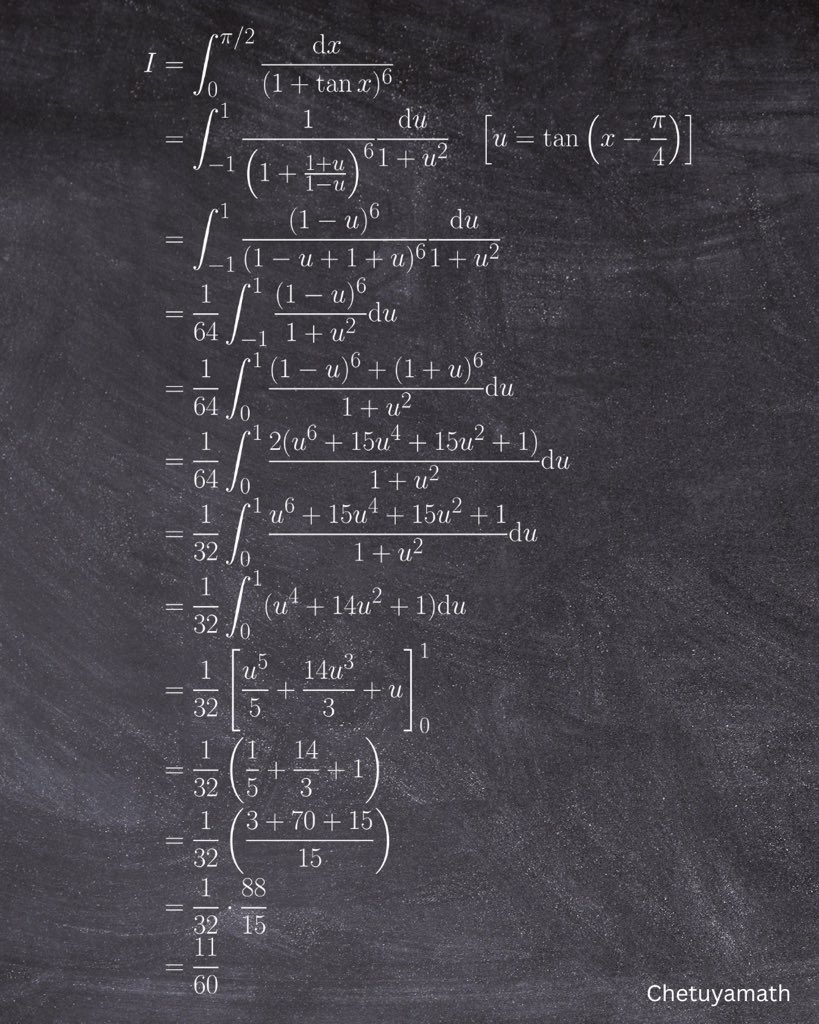 I = ∫_0^{π/2} dx/(1 + tan x)^6
= ∫_{−1}^{1} 1/(1 + (1+u)/(1−u))^6 du/(1 + u²) [u = tan (x − π/4)]
= ∫_{−1}^{1} (1 − u)^6/(1 − u + 1 + u)^6 du/(1 + u²)
= 1/64 ∫_{−1}^{1} (1 − u)^6/(1 + u²) du
= 1/64 ∫_0^1 ((1 − u)^6 + (1 + u)^6)/(1 + u²) du
= 1/64 ∫_0^1 2(u^6 + 15u^4 + 15u² + 1)/(1 + u²) du
= 1/32 ∫_0^1 (u^6 + 15u^4 + 15u² + 1)/(1 + u²) du
= 1/32 ∫_0^1 (u^4 + 14u² + 1)du
= 1/32 [u^5/5 + 14u³/3 + u]_0^1
= 1/32 (1/5 + 14/3 + 1)
= 1/32 ((3 + 70 + 15)/15)
= 1/32 · 88/15
= 11/60
Chetuyamath